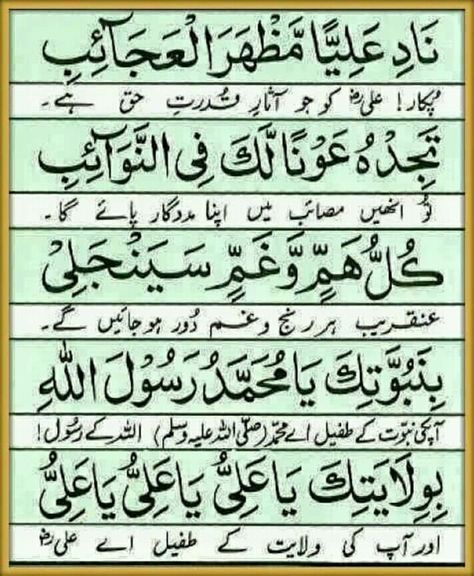 نَادِ عَلِيًّا مَّظْهَرَ الْعَجَآئِبِ
پکار! علیؓ کو جو آثارِ قدرتِ حق ہے۔
تَجِدْهُ عَوْنًا لَّكَ فِي النَّوَآئِبِ
تُو انھیں مصائب میں اپنا مددگار پائے گا۔
كُلُّ هَمٍّ وَّغَمٍّ سَيَنْجَلِيْ
عنقریب ہر رنج و غم دُور ہو جائیں گے۔
بِنَبُوَّتِكَ يَا مُحَمَّدُ رَسُوْلَ اللّٰهِ
آپکی نبوت کے طفیل اے محمد (صلی اللہ علیہ وسلم) اللہ کے رسول!
بِوِلَايَتِكَ يَا عَلِيُّ يَا عَلِيُّ يَا عَلِيُّ
اور آپ کی ولایت کے طفیل اے علیؓ